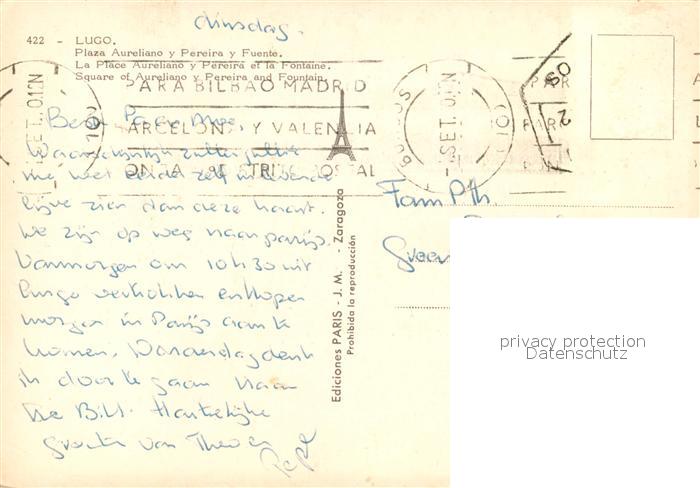 dinsdag.
422 - LUGO.
Plaza Aureliano y Pereira y Fuente.
La Place Aureliano y Pereira et la Fontaine.
Square of Aureliano y Pereira and Fountain.
PARA BILBAO MADRID
BARCELONA Y VALENCIA
DISTRITO POSTAL
BURGOS
Beste Pa en Moe,
Waarschijnlijk zullen jullie
me wel eerder zelf
zien dan deze kaart.
We zijn op weg naar parijs.
Vanmorgen om 10h30 uit
vertrokken en hopen
morgen in Parijs aan te
komen. Donderdag denk
ik door te gaan naar
De Bilt. Hartelijke
Groeten van Theo en
Fam Pth.
Groen
Ediciones PARIS - J. M. - Zaragoza
Prohibida la reproducción
privacy protection
Datenschutz